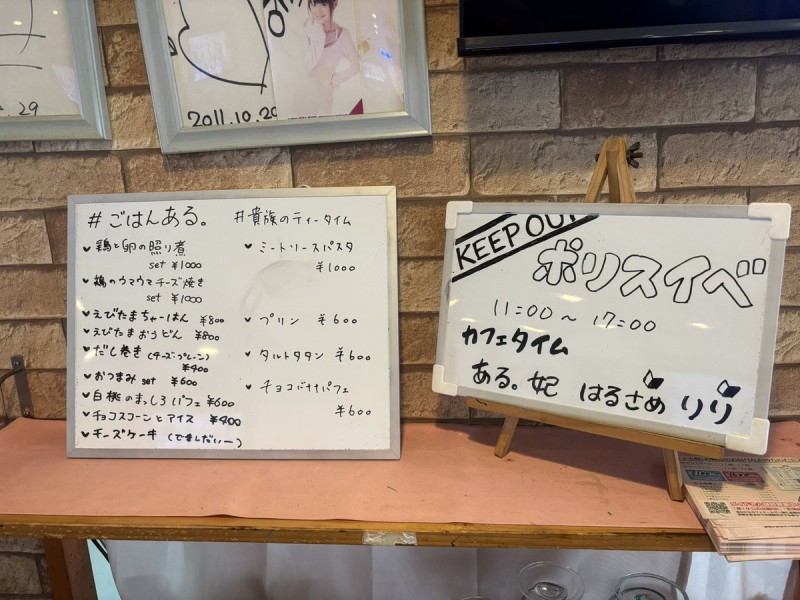 2011.10.20
.29
#ごはんある。
♥鶏と卵の照り煮
set ¥1000
♥鶏のウマウマチーズ焼き
set ¥1000
♥えびたまちゃーはん ¥800
♥えびたまおうどん ¥800
♥だし巻き(チーズ・プレーン)
¥400
♥おつまみset ¥600
♥白桃のまっしろパフェ ¥600
♥チョコスコーンとアイス ¥400
♥チーズケーキ (できしだいー)
#貴族のティータイム
♥ミートソースパスタ
¥1000
♥プリン ¥600
♥タルトタタン ¥600
♥チョコバナナパフェ
¥600
KEEP OUT
ポリスイベ
11:00〜17:00
カフェタイム
ある。妃 はるさめ りり